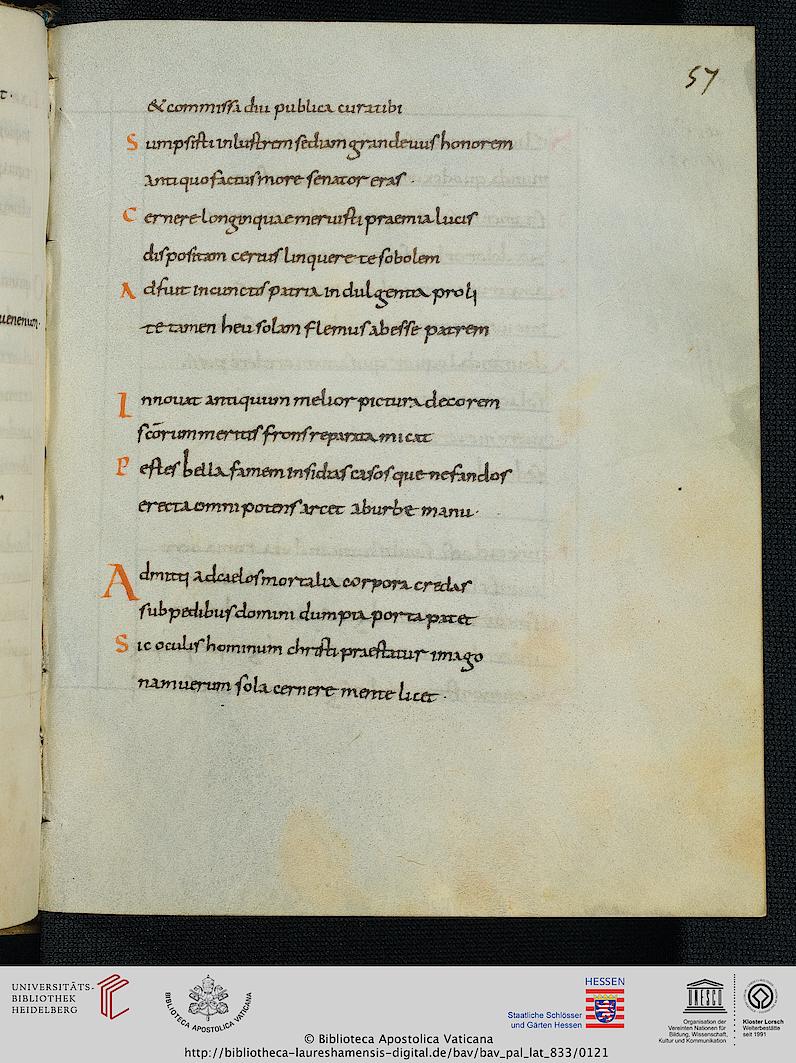 57
& commissa diu publica cura tibi
Sumpsisti inlustrem sedium grandevus honorem
antiquo factus more senator eras.
Cernere longinquae meruisti praemia lucis
dispositam certus linquere te sobolem
Adfuit in cunctis patria indulgentia proli
te tamen heu solam flemus abesse patrem
Innouat antiquum melior pictura decorem
scōrum meritis frons reparata micat
Pestes bella famem insidias casosque nefandos
erecta omnipotens arcet ab urbe manu.
Admitti ad caelos mortalia corpora credas
sub pedibus domini dum pia porta patet
Sic oculis hominum christi praestatur imago
nam uerum sola cernere mente licet.
uenenum.
UNIVERSITÄTS-
BIBLIOTHEK
HEIDELBERG
BIBLIOTECA APOSTOLICA VATICANA
HESSEN
Staatliche Schlösser
und Gärten Hessen
UNESCO
Organisation der
Vereinten Nationen für
Bildung, Wissenschaft,
Kultur und Kommunikation
Kloster Lorsch
Welterbestätte
seit 1991
© Biblioteca Apostolica Vaticana
http://bibliotheca-laureshamensis-digital.de/bav/bav_pal_lat_833/0121